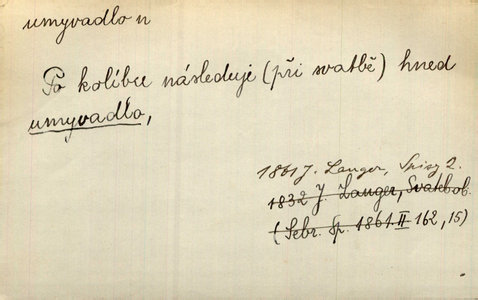 umyvadlo n
Po kolíbce následuje (při svatbě) hned
umyvadlo,
1861 J. Langer, Spisy 2.
1832 J. Langer, Svatební ob.
(Sebr. Sp. 1861. II 162, 15)